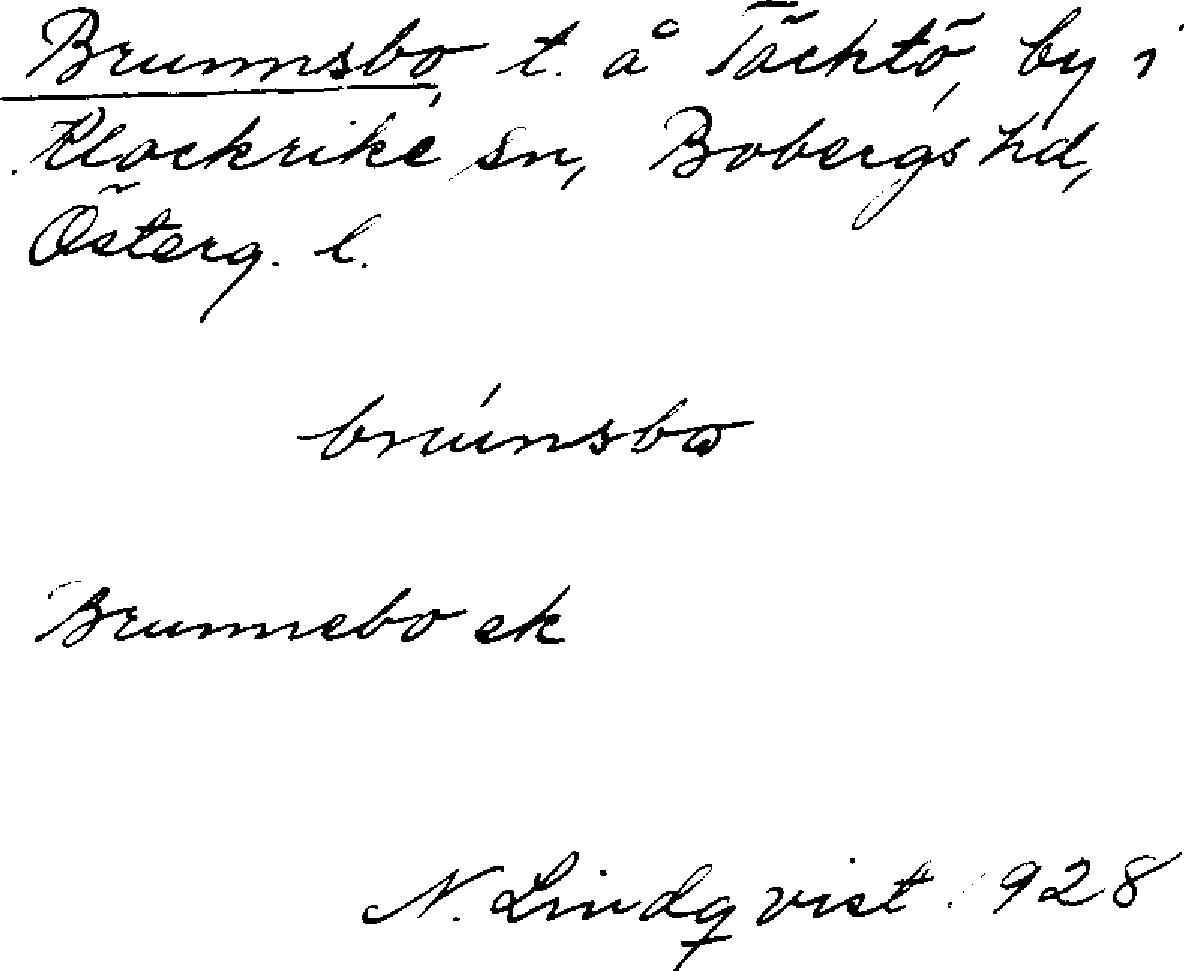 Brunnsbo, t. å Täcktö, by i
Klockrike sn, Bobergs hd,
Österg. l.
brúnsbω
Brunnebo ek
N. Lindqvist 1928